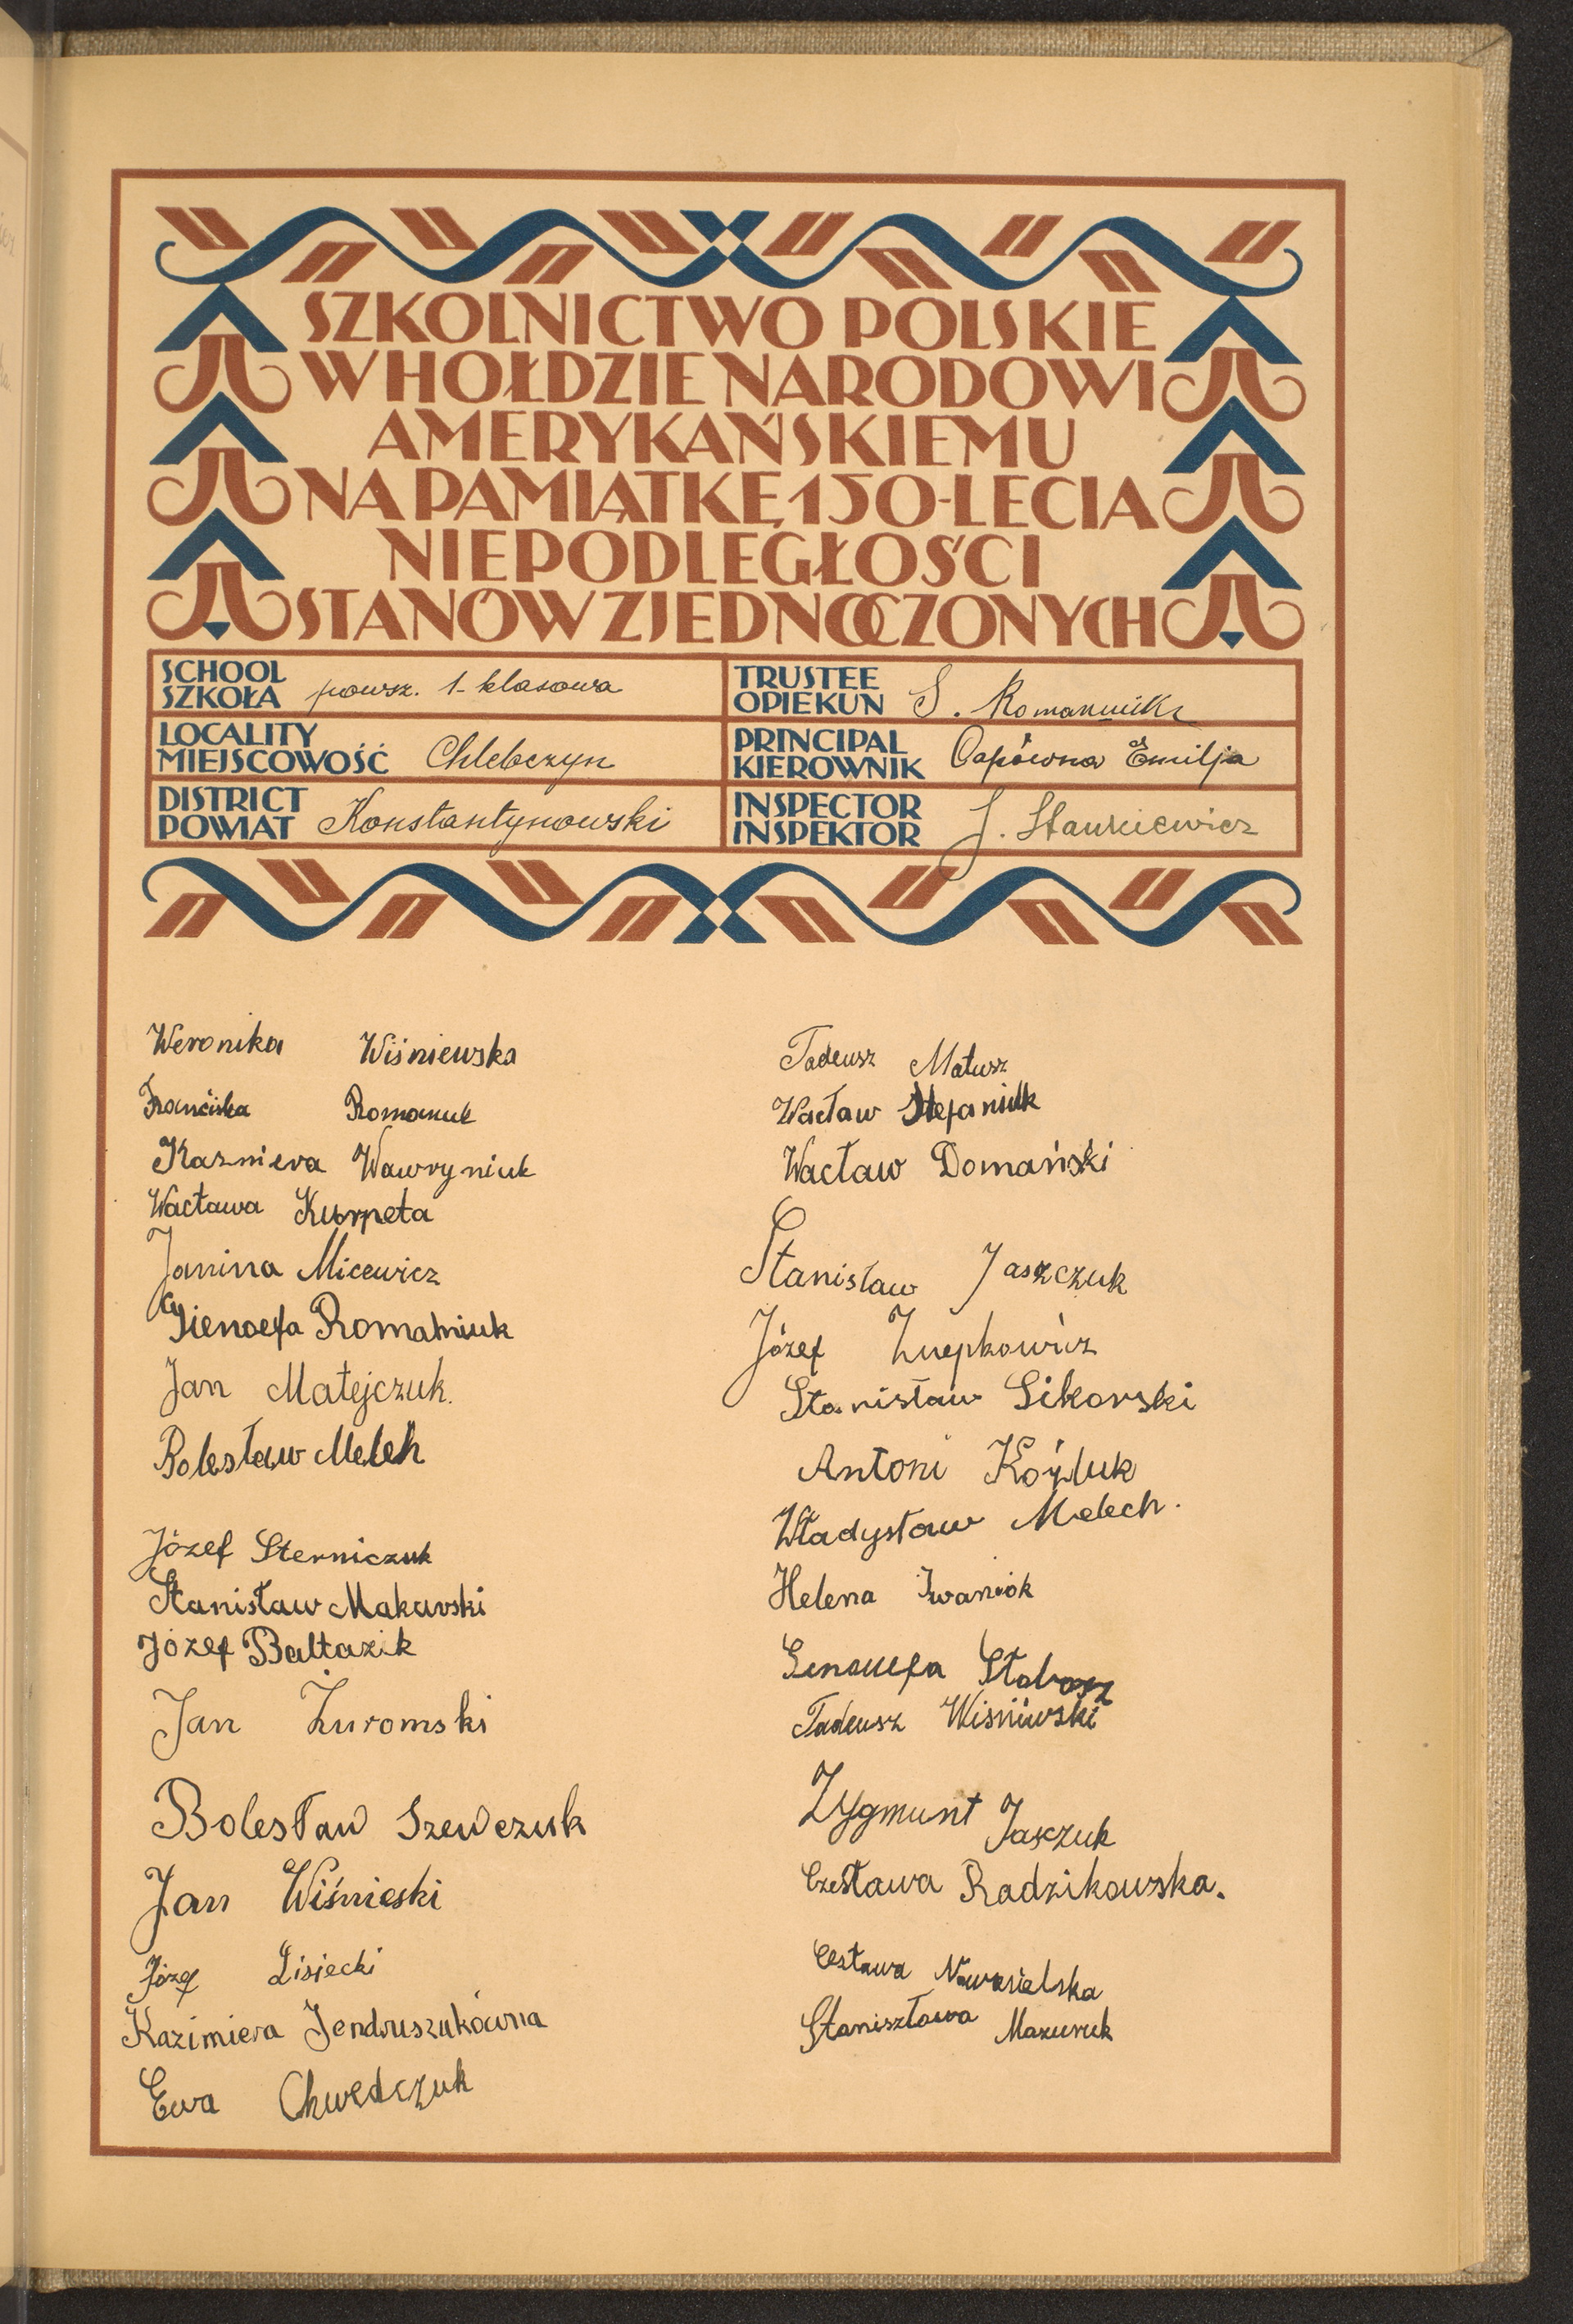 SZKOLNICTWO POLSKIE
W HOŁDZIE NARODOWI
AMERYKAŃSKIEMU
NA PAMIĄTKĘ 150-LECIA
NIEPODLEGŁOŚCI
STANÓW ZJEDNOCZONYCH
SCHOOL
SZKOŁA powsz. 1-klasowa
LOCALITY
MIEJSCOWOŚĆ Chlebczyn
DISTRICT
POWIAT Konstantynowski
TRUSTEE
OPIEKUN S. Romaniuk
PRINCIPAL
KIEROWNIK Emilja
INSPECTOR
INSPEKTOR J. Stankiewicz
Weronika Wiśniewska
Romanuk
Kazmiera Wawryniuk
Wacława Kurpeta
Janina Micewicz
Gienoefa Romaniuk
Jan Matejczuk.
Bolesław Meleh
Józef Sterniczuk
Stanisław Makarski
Józef Baltazik
Jan Żuromski
Bolesław Szewczuk
Jan Wiśnieski
Józef Lisiecki
Kazimiera Jendruszukówna
Ewa Chwedczuk
Tadeusz Matusz
Wacław Stefaniuk
Wacław Domański
Stanisław Jaszczuk
Józef
Stanisław Sikorski
Antoni Kóźluk
Władysław Melech.
Helena Iwaniok
Genouefa
Tadeusz Wiśniwski
Zygmunt Jasczuk
Czesława Radzikowska.
Cesława
Staniszława Mazuruk